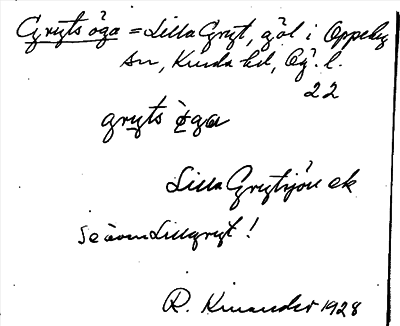 Gryts öga = Lilla Gryt, göl i Oppeby
sn, Kinda hd, Ög. l.
22
gryts öga
Lilla Grytsjön ek
Se även Lillgryt!
R. Kinander 1928